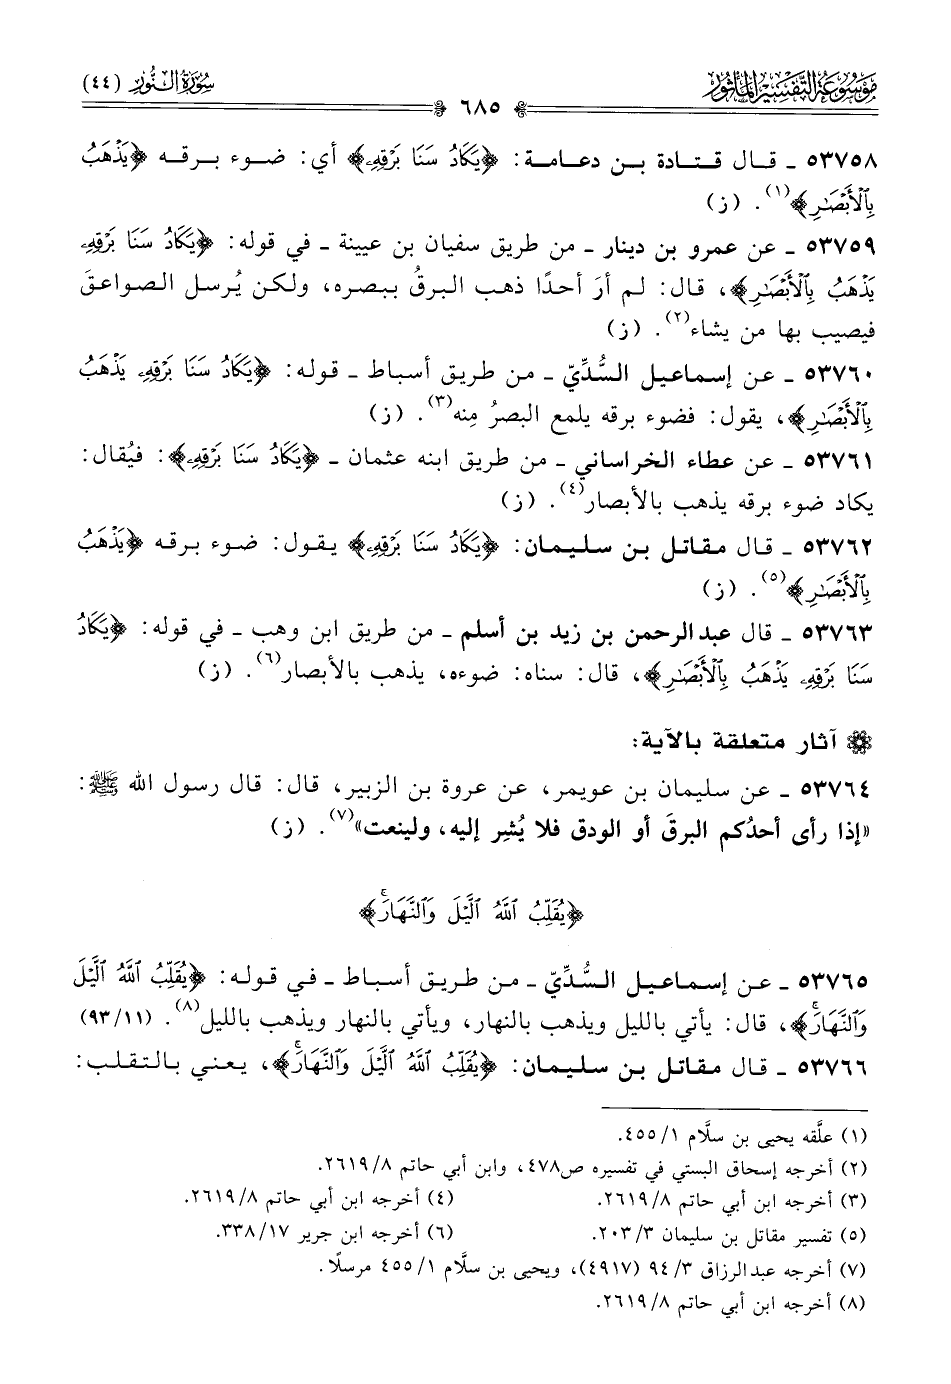 مَوْسُوعَة التَّفْسِير المَأْثُور
سُورَةُ النُّور (٤٤)
٦٨٥
٥٣٧٥٨ ـ قال قتادة بن دعامة: ﴿يَكَادُ سَنَا بَرْقِهِۦ﴾ أي: ضوء برقه ﴿يَذْهَبُ
بِٱلْأَبْصَٰرِ﴾(١). (ز)
٥٣٧٥٩ ـ عن عمرو بن دينار ـ من طريق سفيان بن عيينة ـ في قوله: ﴿يَكَادُ سَنَا بَرْقِهِۦ
يَذْهَبُ بِٱلْأَبْصَٰرِ﴾، قال: لم أرَ أحدًا ذهب البرقُ ببصره، ولكن يُرسل الصواعقَ
فيصيب بها من يشاء(٢). (ز)
٥٣٧٦٠ ـ عن إسماعيل السُّدِّيّ ـ من طريق أسباط ـ قوله: ﴿يَكَادُ سَنَا بَرْقِهِۦ يَذْهَبُ
بِٱلْأَبْصَٰرِ﴾، يقول: فضوء برقه يلمع البصرُ مِنه(٣). (ز)
٥٣٧٦١ ـ عن عطاء الخراساني ـ من طريق ابنه عثمان ـ ﴿يَكَادُ سَنَا بَرْقِهِۦ﴾: فيُقال:
يكاد ضوء برقه يذهب بالأبصار(٤). (ز)
٥٣٧٦٢ ـ قال مقاتل بن سليمان: ﴿يَكَادُ سَنَا بَرْقِهِۦ﴾ يقول: ضوء برقه ﴿يَذْهَبُ
بِٱلْأَبْصَٰرِ﴾(٥). (ز)
٥٣٧٦٣ ـ قال عبدالرحمن بن زيد بن أسلم ـ من طريق ابن وهب ـ في قوله: ﴿يَكَادُ
سَنَا بَرْقِهِۦ يَذْهَبُ بِٱلْأَبْصَٰرِ﴾، قال: سناه: ضوءه، يذهب بالأبصار(٦). (ز)
آثار متعلقة بالآية:
٥٣٧٦٤ ـ عن سليمان بن عويمر، عن عروة بن الزبير، قال: قال رسول الله ﷺ:
«إذا رأى أحدُكم البرقَ أو الودق فلا يُشِر إليه، ولينعت»(٧). (ز)
﴿يُقَلِّبُ ٱللَّهُ ٱلَّيْلَ وَٱلنَّهَارَۚ﴾
٥٣٧٦٥ ـ عن إسماعيل السُّدِّيّ ـ من طريق أسباط ـ في قوله: ﴿يُقَلِّبُ ٱللَّهُ ٱلَّيْلَ
وَٱلنَّهَارَۚ﴾، قال: يأتي بالليل ويذهب بالنهار، ويأتي بالنهار ويذهب بالليل(٨). (١١/ ٩٣)
٥٣٧٦٦ ـ قال مقاتل بن سليمان: ﴿يُقَلِّبُ ٱللَّهُ ٱلَّيْلَ وَٱلنَّهَارَۚ﴾، يعني بالتقلب:
(١) علَّقه يحيى بن سلَّام ١/ ٤٥٥.
(٢) أخرجه إسحاق البستي في تفسيره ص٤٧٨، وابن أبي حاتم ٨/ ٢٦١٩.
(٣) أخرجه ابن أبي حاتم ٨/ ٢٦١٩. (٤) أخرجه ابن أبي حاتم ٨/ ٢٦١٩.
(٥) تفسير مقاتل بن سليمان ٣/ ٢٠٣. (٦) أخرجه ابن جرير ١٧/ ٣٣٨.
(٧) أخرجه عبدالرزاق ٣/ ٩٤ (٤٩١٧)، ويحيى بن سلَّام ١/ ٤٥٥ مرسلًا.
(٨) أخرجه ابن أبي حاتم ٨/ ٢٦١٩.